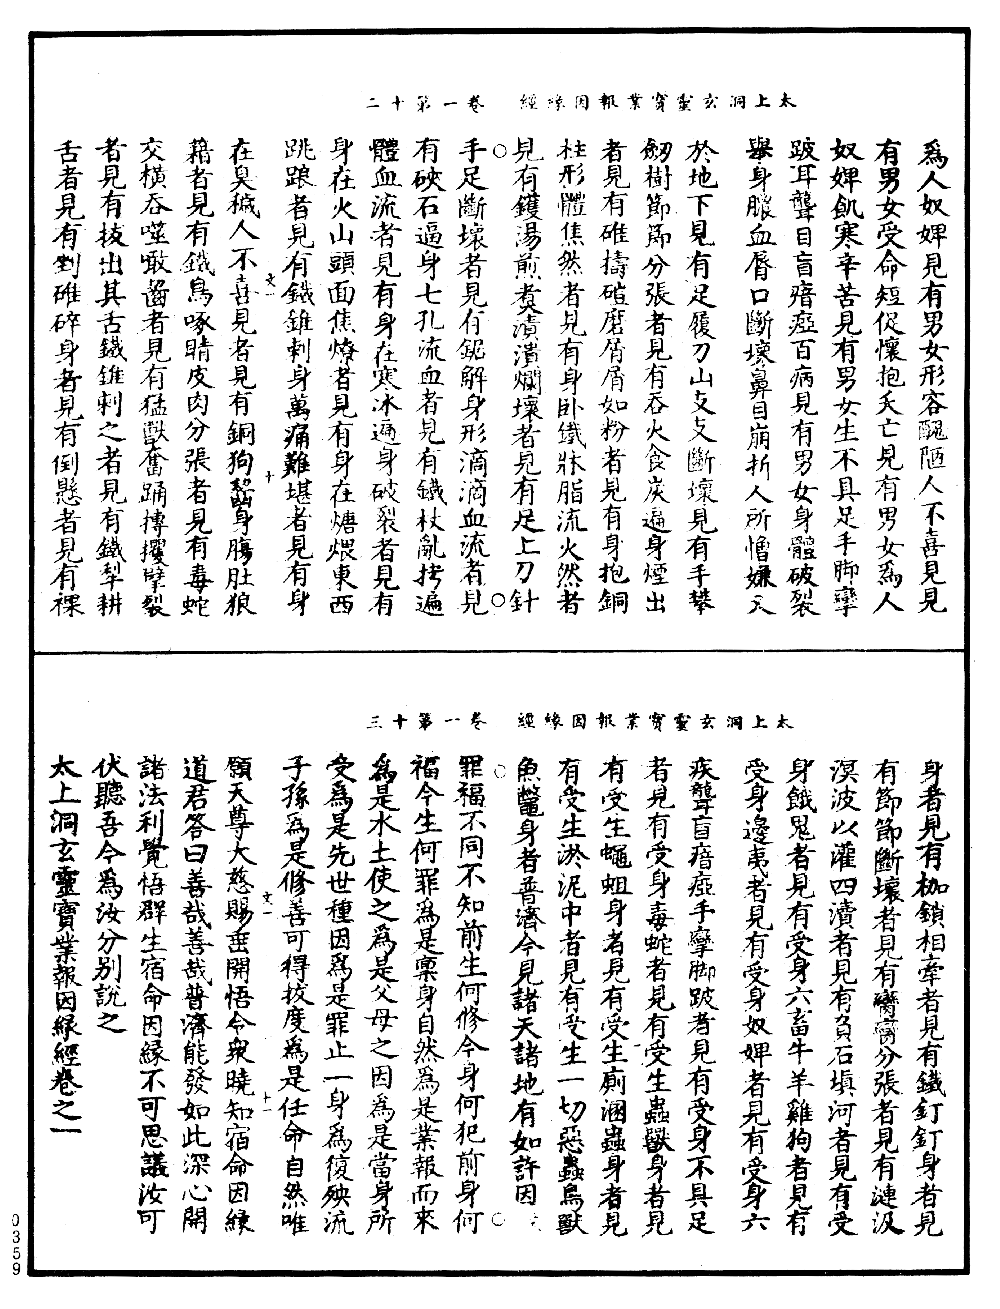 太上洞玄靈寳業報因緣經　卷一第十二
爲人奴婢見有男女形容醜陋人不喜見見
有男女受命短促懷抱夭亡見有男女爲人
奴婢飢寒辛苦見有男女生不具足手脚攣
跛耳聾目盲瘖瘂百病見有男女身體破裂
舉身膿血脣口斷壞鼻目崩折人所憎嫌又
於地下見有足履刀山支支斷壞見有手攀
劒樹節節分張者見有吞火食炭遍身煙出
者見有碓擣磑磨屑屑如粉者見有身抱銅
柱形體焦然者見有身卧鐵牀脂流火然者
見有鑊湯煎煑漬潰爛壞者見有足上刀針
手足斷壞者見有鋸解身形滴滴血流者見
有硤石逼身七孔流血者見有鐵杖亂拷遍
體血流者見有身在寒冰遍身破裂者見有
身在火山頭面焦燎者見有身在煻煨東西
跳踉者見有鐵錐刺身萬痛難堪者見有身
文一　十
在臭穢人不喜見者見有銅狗齧身膓肚狼
藉者見有鐵鳥啄睛皮肉分張者見有毒蛇
交橫吞噬噉齧者見有猛獸奮踊搏攫擘裂
者見有拔出其舌鐵錐刺之者見有鐵犁耕
舌者見有剉碓碎身者見有倒懸者見有裸
太上洞玄靈寳業報因緣經　卷一第十三
身者見有枷鎖相牽者見有鐵釘釘身者見
有節節斷壞者見有臠臠分張者見有漣汲
溟波以灌四瀆者見有負石塡河者見有受
身餓鬼者見有受身六畜牛羊雞狗者見有
受身邊夷者見有受身奴婢者見有受身六
疾聾盲瘖瘂手攣脚跛者見有受身不具足
者見有受身毒蛇者見有受生蟲獸身者見
有受生蠅蛆身者見有受生廁溷蟲身者見
有受生淤泥中者見有受生一切惡蟲鳥獸
魚鼈身者普濟今見諸天諸地有如許因
罪福不同不知前生何修今身何犯前身何
福今生何罪爲是稟身自然爲是業報而來
爲是水土使之爲是父母之因爲是當身所
受爲是先世種因爲是罪止一身爲復殃流
子孫爲是修善可得拔度爲是任命自然唯
文一　十一
願天尊大慈賜垂開悟令衆曉知宿命因緣
道君答曰善哉善哉普濟能發如此深心開
諸法利覺悟群生宿命因緣不可思議汝可
伏聽吾今爲汝分别說之
太上洞玄靈寶業報因緣經卷之一
0359